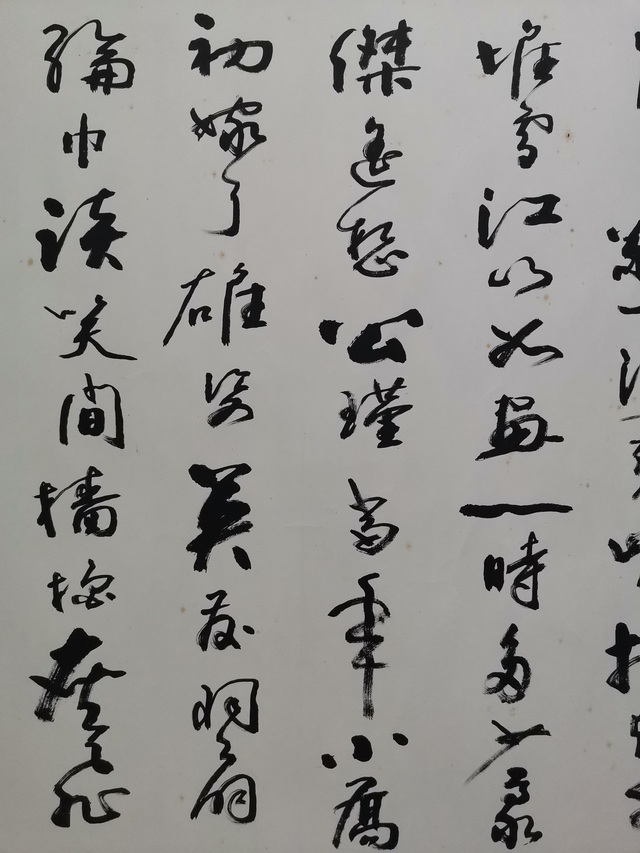 堆雪江山如畫一時多少豪
傑遥想公瑾當年小喬
初嫁了雄姿英發羽扇
綸巾談笑間檣櫓灰飛